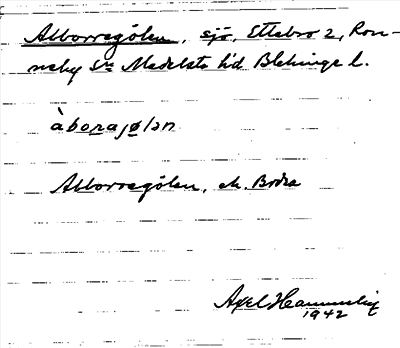 Abborregölen, sjö, Ettebro 2, Ron-
neby Sn Medelsta hd Blekinge l.
àborajølən
Abborregölen, ek. Bräkne
Axel Hammarlin
1942